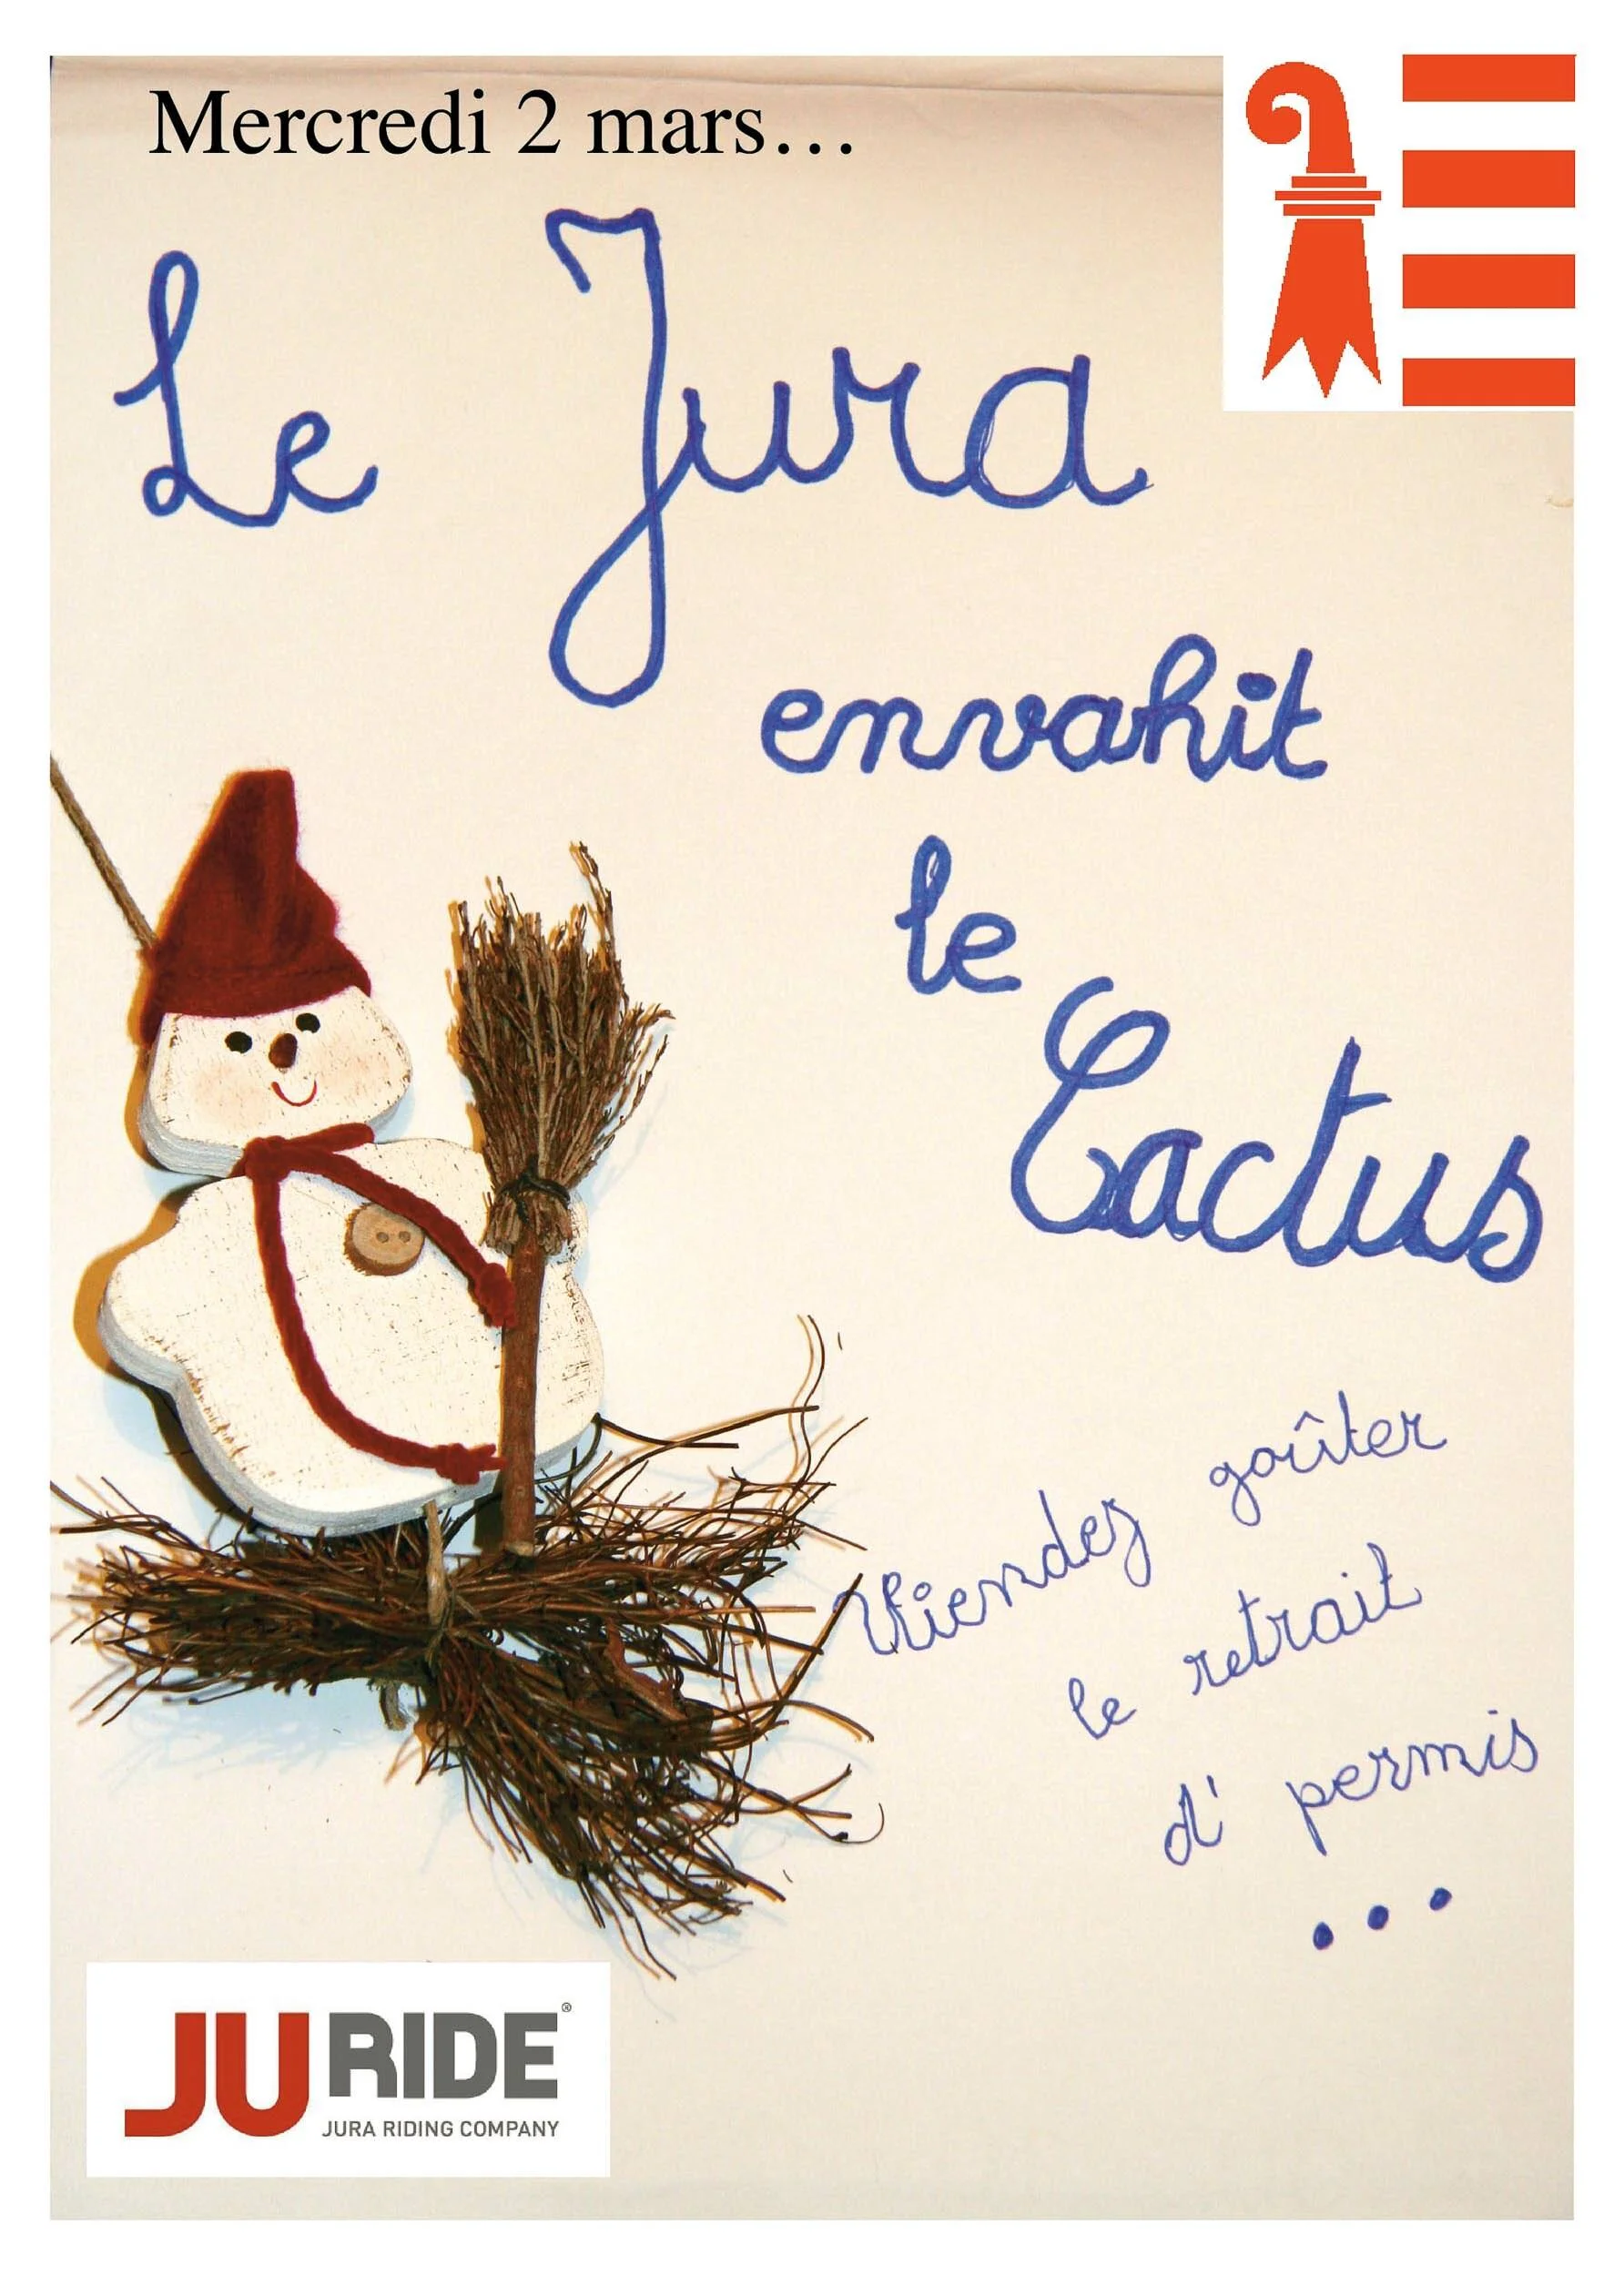 Mercredi 2 mars…
Le Jura
envahit
le
Cactus
Viendez goûter
le retrait
d' permis
...
JURIDE®
JURA RIDING COMPANY